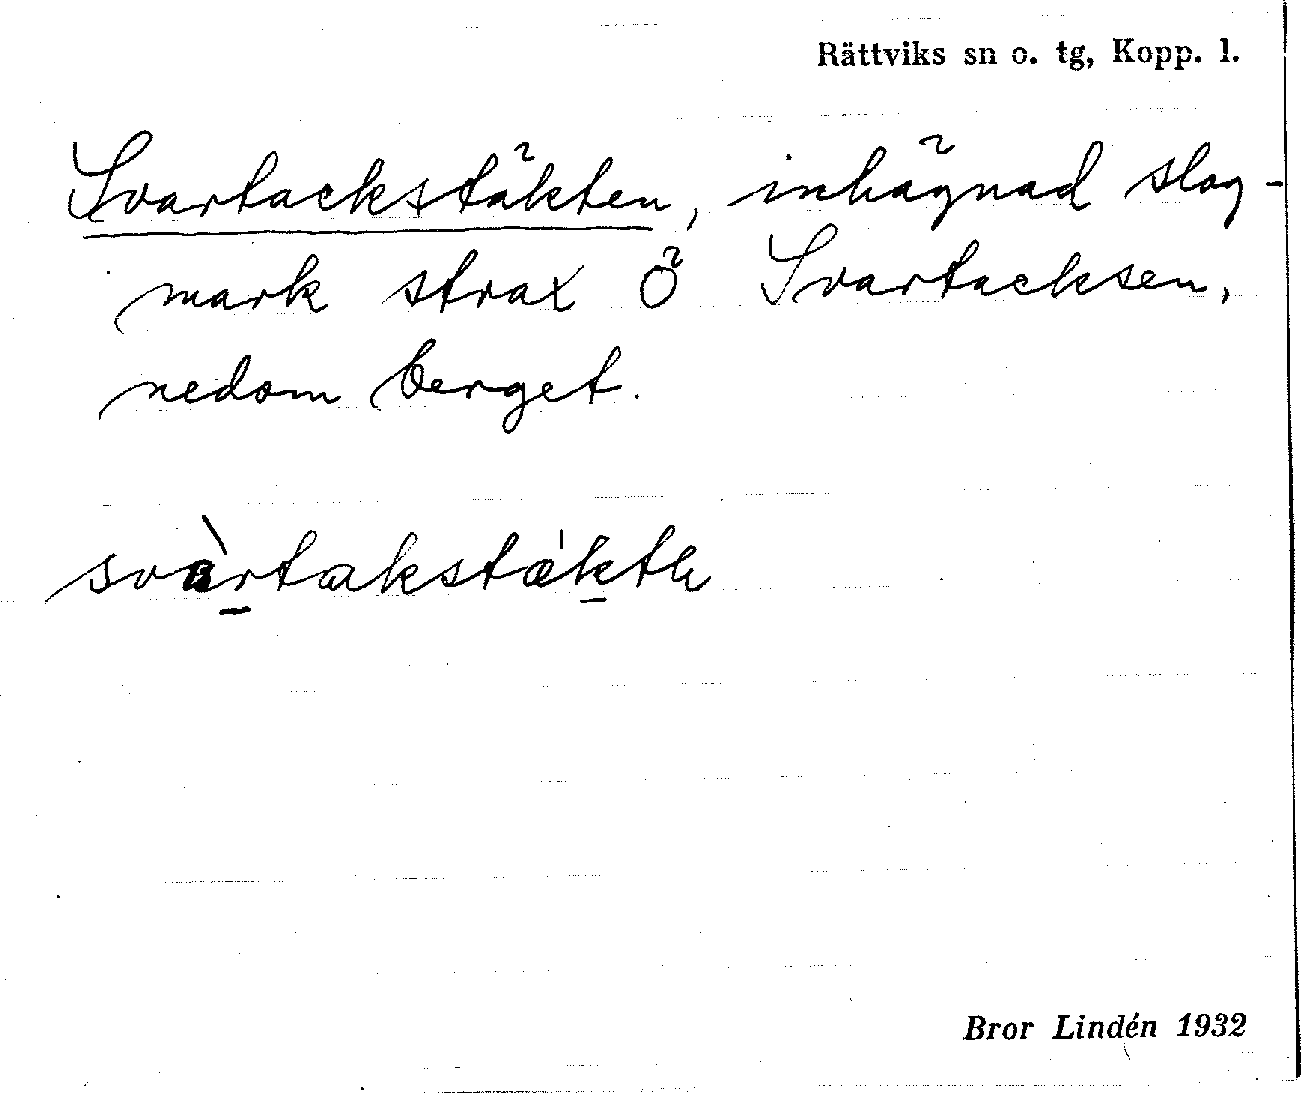 Rättviks sn o. tg, Kopp. l.
Svartackstäkten, inhägnad slog-
mark strax Ö Svartacksen,
nedom berget.
svàrtakstæ̀ktn̥
Bror Lindén 1932